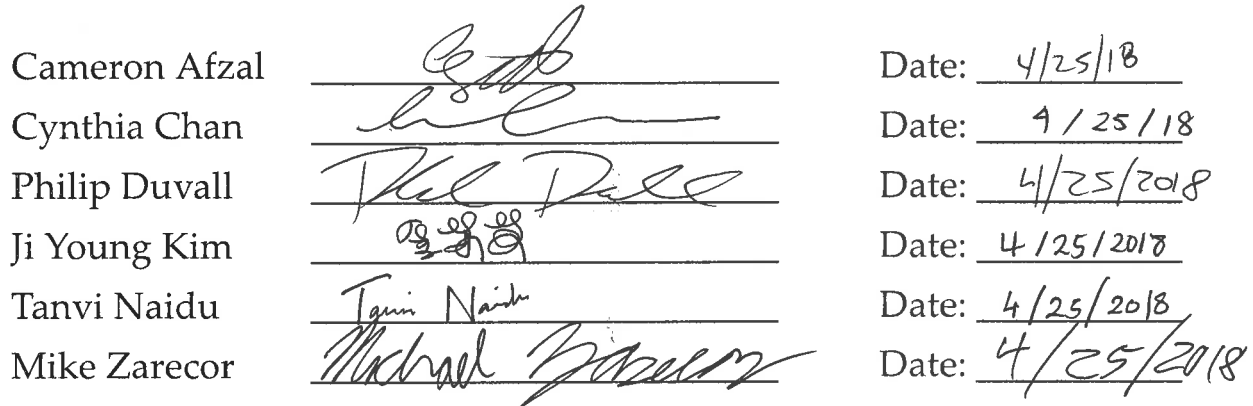 Cameron Afzal Date: 4/25/18
Cynthia Chan Date: 4/25/18
Philip Duvall Phil Duvall Date: 4/25/2018
Ji Young Kim Date: 4/25/2018
Tanvi Naidu Tanvi Naidu Date: 4/25/2018
Mike Zarecor Michael Zarecor Date: 4/25/2018